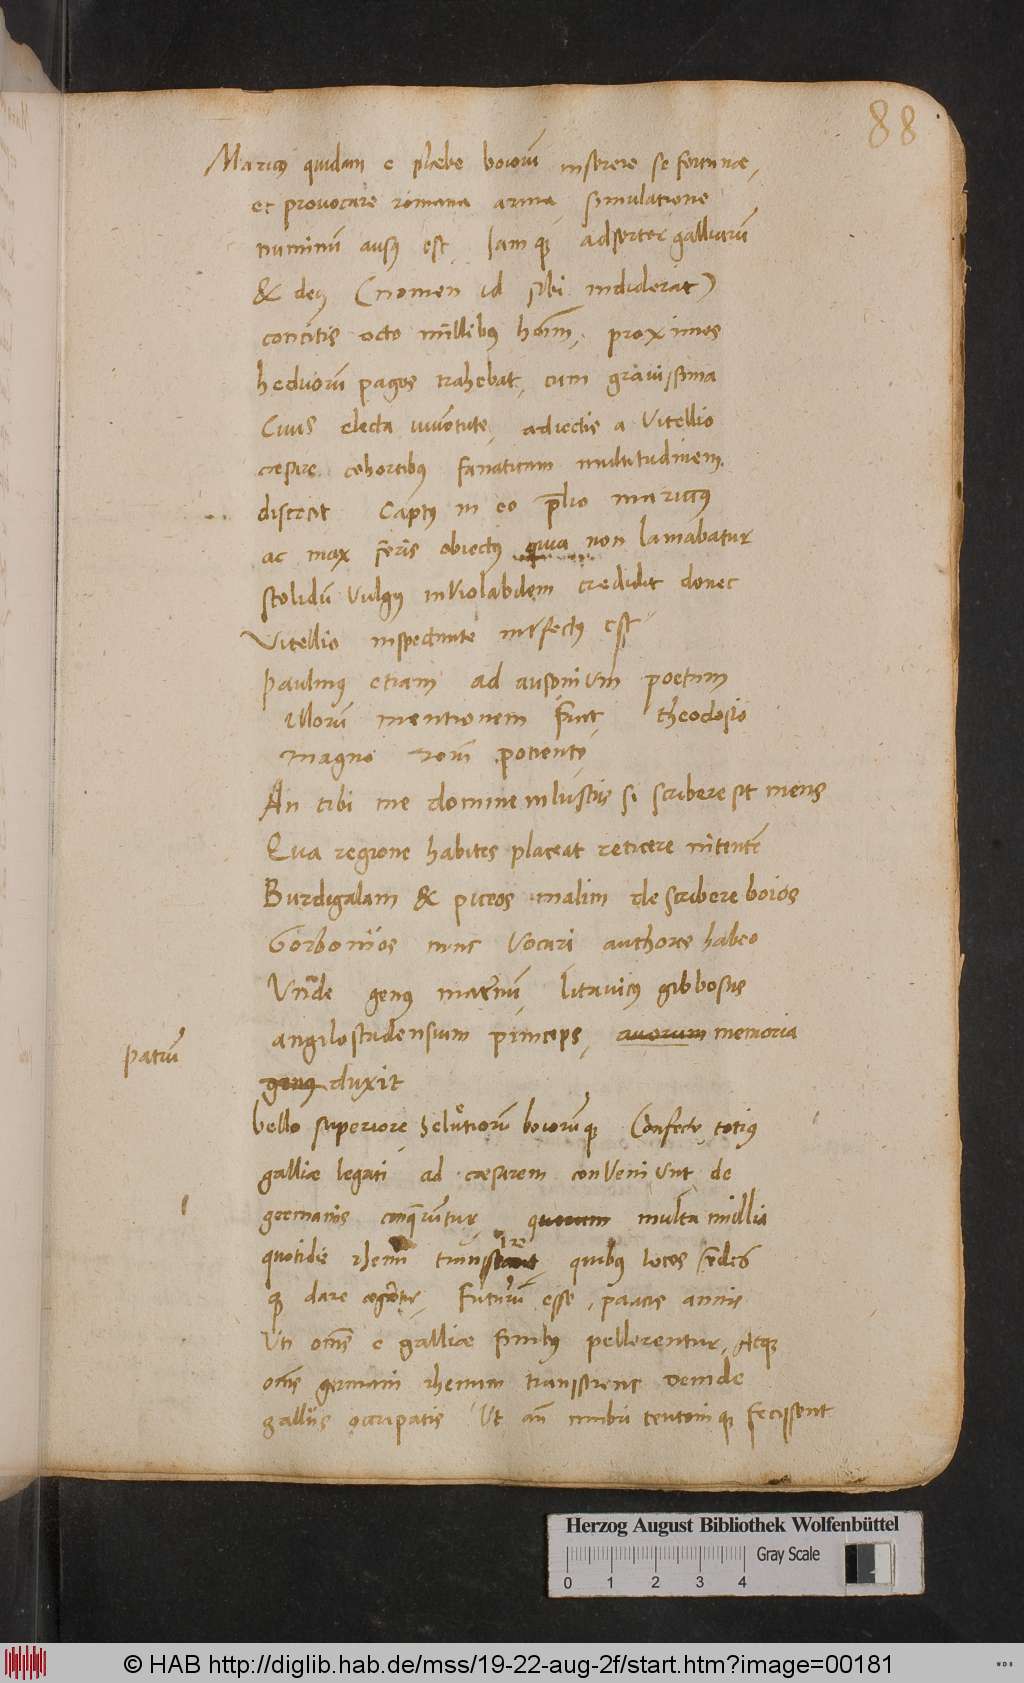 88
Maricꝯ quidam e plæbe boiorū inserere se fortunæ,
et provocare romana arma, simulatione
numinū ausꝯ est, Iam qꝫ adserter galliarū
& deꝯ (nomen id sibi indiderat)
concitis octo millibꝯ hom̄, proximos
heduorū pagos trahebat, cum gravissima
Civis electa iuventute, adiectis a Vitellio
cæsare cohortibꝯ fanaticam multitudinem
disiecit Captꝯ in eo p̄lio mariccꝯ
ac max feris obiectꝯ quia non laniabatur
stolidū Vulgꝯ inViolabilem credidit donec
Vitellio inspectante interfectꝯ est
Paulinꝯ etiam ad ausonium poetam
illorū mentionem facit, theodosio
magno rom̄ potienti
An tibi me domine inlustris si scribere sit mens
Qua regione habites placeat reticere nitentē
Burdigalam & piceos malim describere boios
Gorbonios nunc Vocari authores habeo
Vnde genꝯ maternū, litavicꝯ gibbosus
angilostudensium princeps, avorum memoria
patrū
genꝯ duxit
bello superiore helvetiorū boiorūqꝫ Confecto totiꝯ
galliæ legati ad cæsarem conVeniunt de
germanis conquerūtur, quorum multa millia
quotidie rhenū transire, quibꝯ locos sedes
qꝫ dare cogerētur, Futurū esse, paucis annis
Vti om̄s e galliæ finibꝯ pellerentur, Atqꝫ
om̄s germani rhenum transirent Deinde
galliis occupatis Ut an̄ cimbri teutoni qꝫ fecissent
Herzog August Bibliothek Wolfenbüttel
Gray Scale
0 1 2 3 4
© HAB http://diglib.hab.de/mss/19-22-aug-2f/start.htm?image=00181